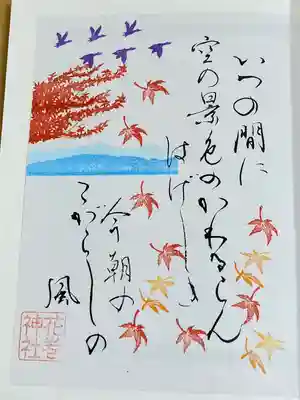 いつの間に
空の景色のかわるらん
はげしき
今朝の
こがらしの
風
花岩
神社